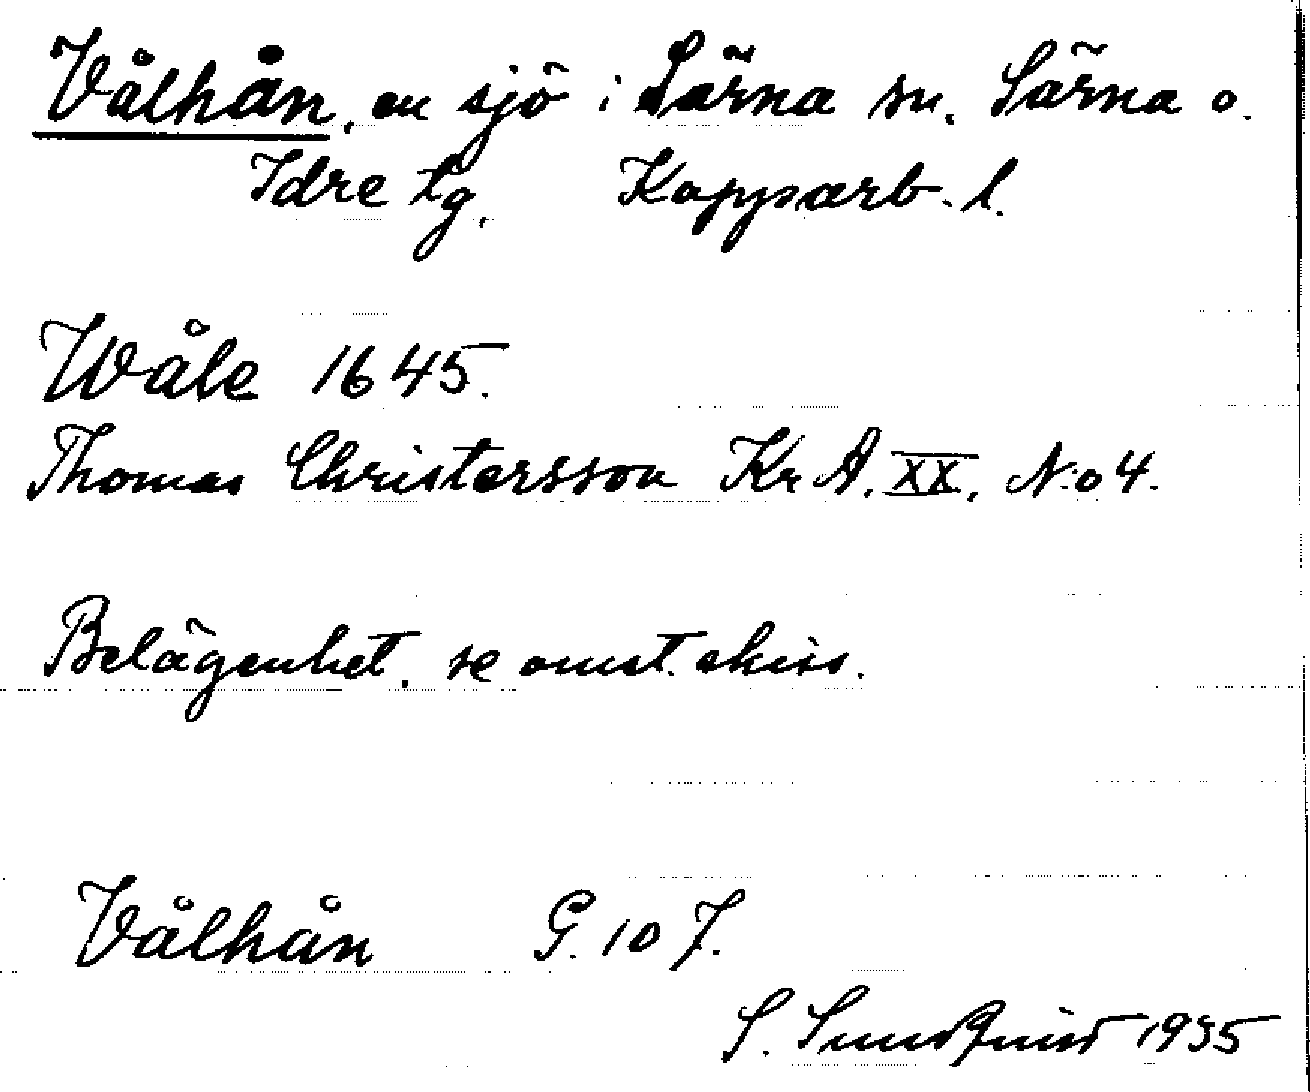 Vålhån, en sjö i Särna sn. Särna o.
Idre tg. Kopparb. l.
Wåle 1645.
Thomas Christersson Kr A. XX, N:o 4.
Belägenhet, se omst. skiss.
Vålhån G. 10 7.
S. Sundquist 1935